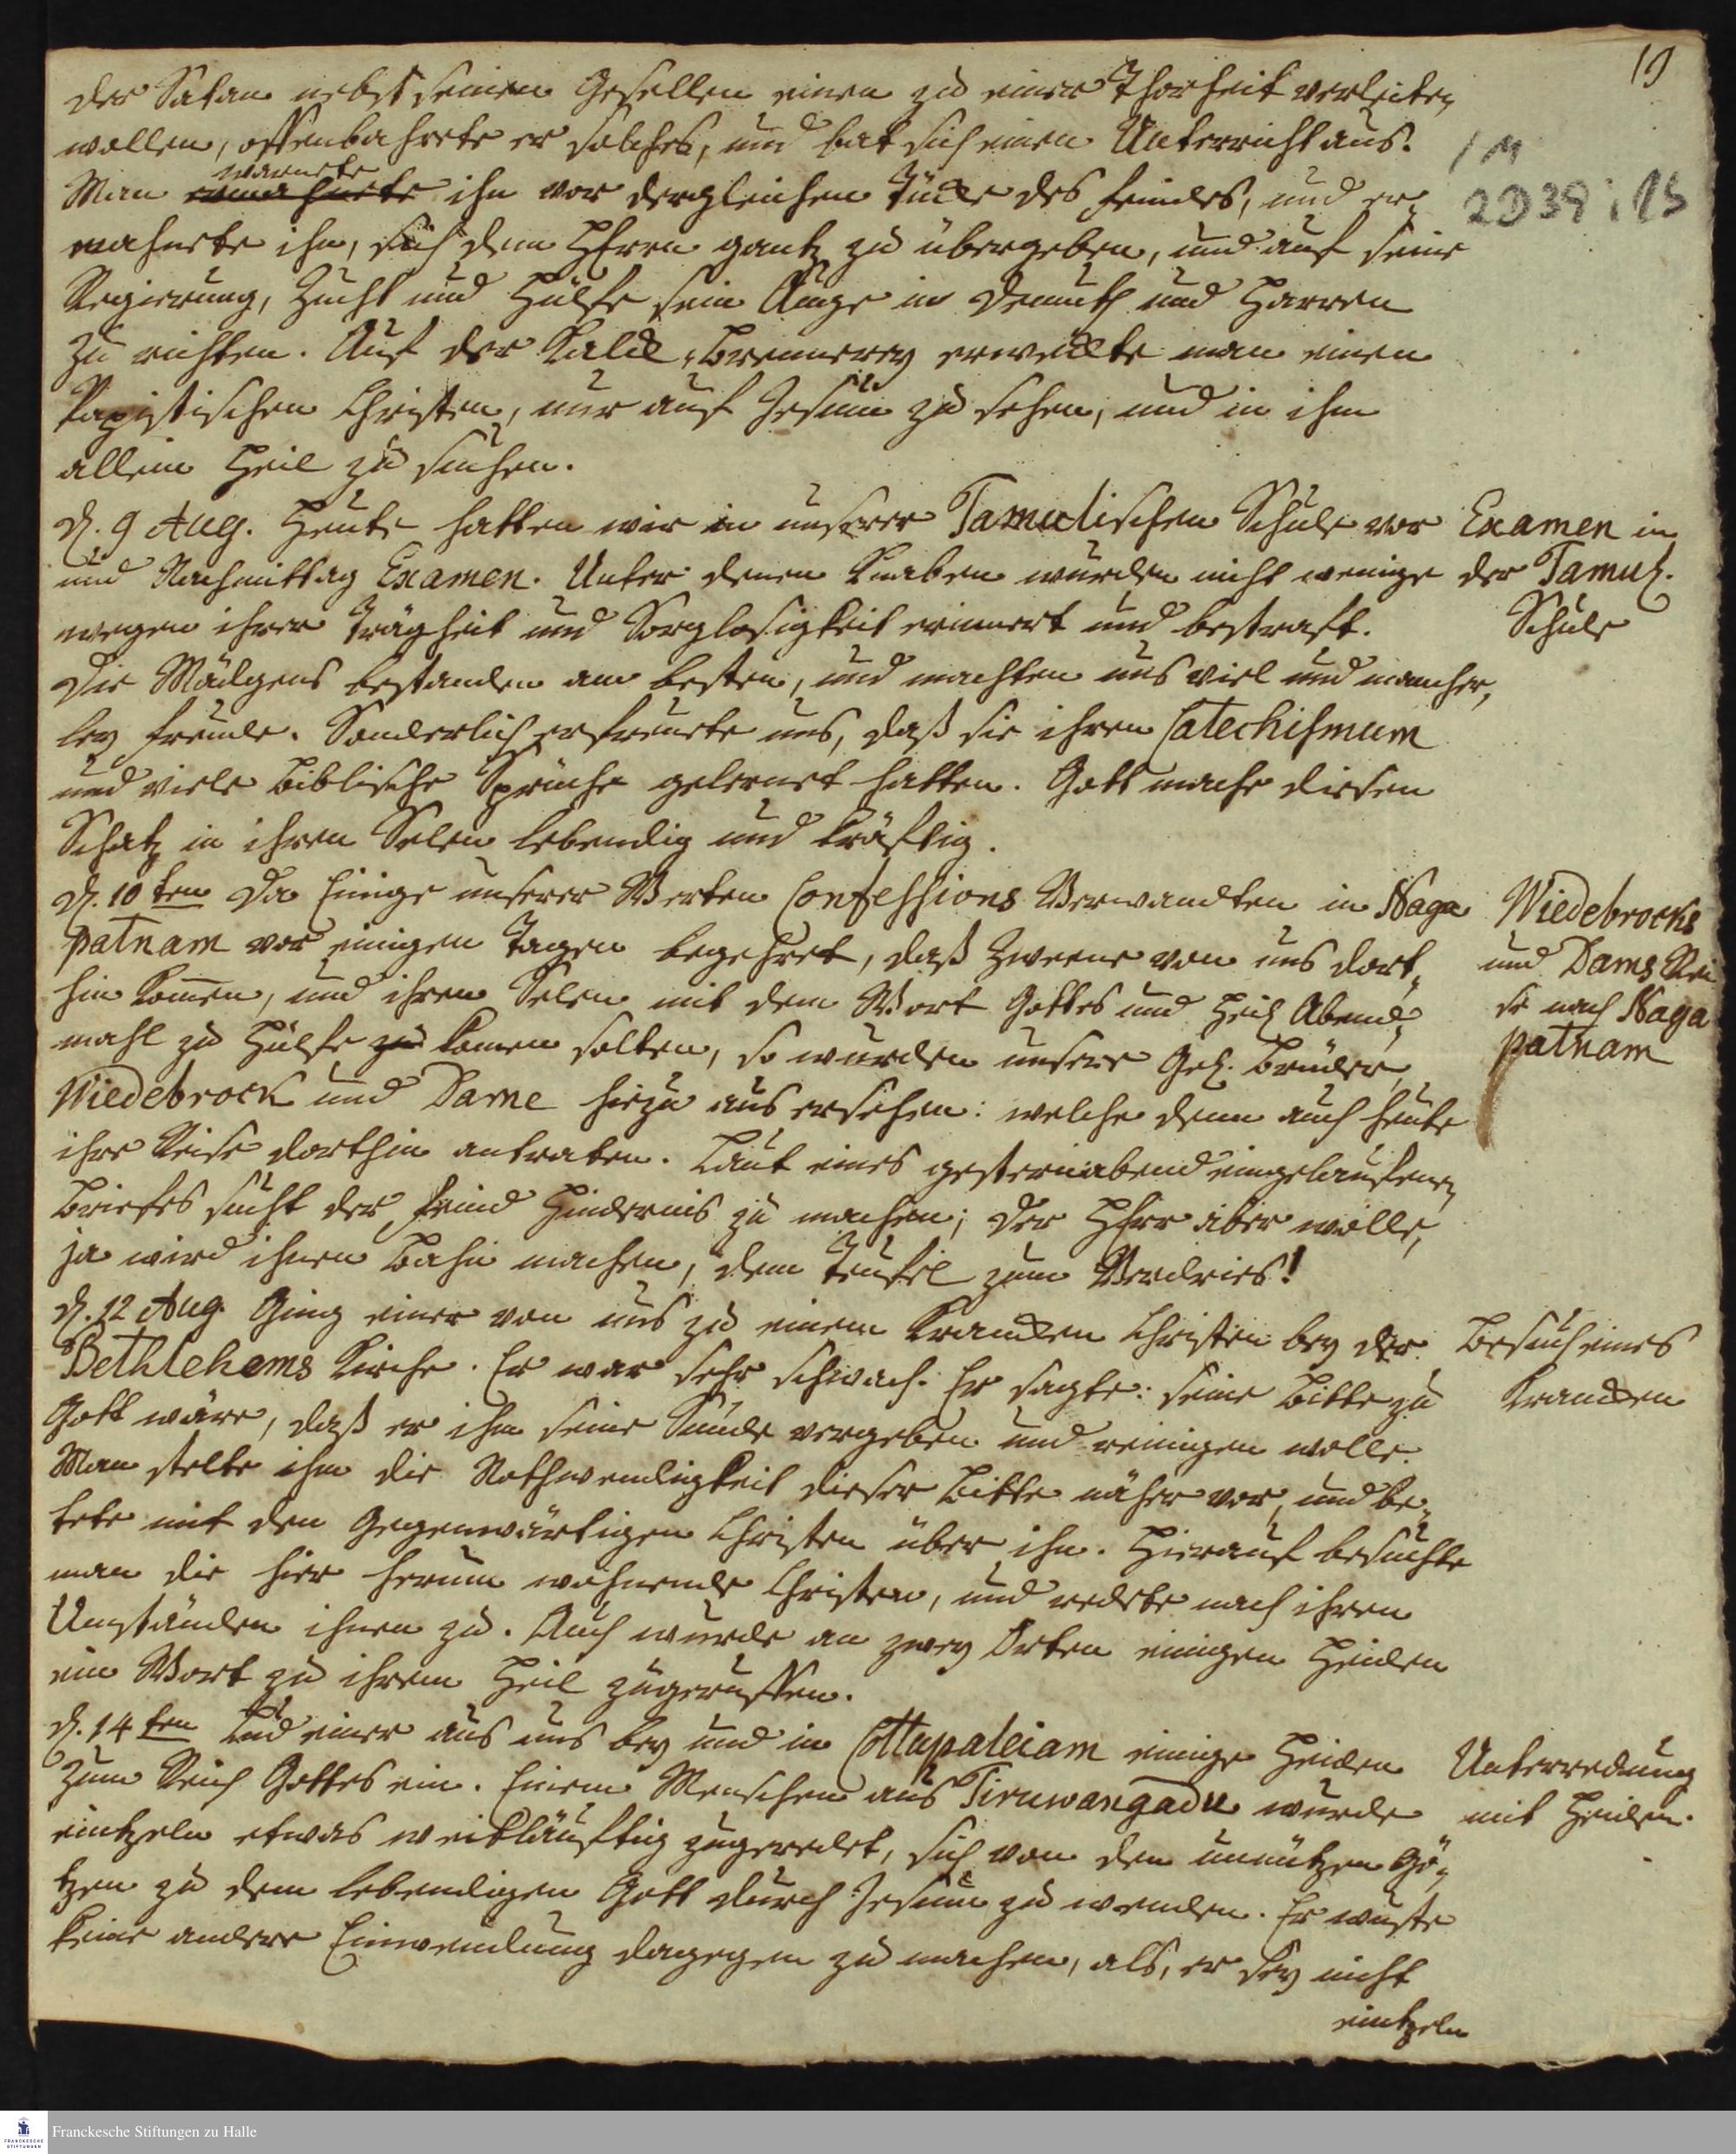 19
der Satan nebst seinen Gesellen einen zu einer Thorheit verleiten
wollen, offenbahrete er solches, und bat sich einen Unterricht aus.
warnete
Man ermahnete ihn vor dergleichen Tücke des Feindes, und er-
mahnete ihn, sich dem HErrn gantz zu übergeben, und auf seine
Regierung, Zucht und Hülfe sein Auge in Demuth und Harren
zu richten. Auf der Kalck-Brennerey erweckte man einen
Papistischen Christen, nur auf Jesum zu sehen, und in ihm
allein Heil zu suchen.
1 M
2D39:15
d. 9 Aug. Heute hatten wir in unserer Tamulischen Schule vor
und Nachmittag Examen. Unter denen Knaben wurden nicht wenige
wegen ihrer Trägheit und Sorglosigkeit erinnert und bestraft.
Die Mädgens bestanden am besten, und machten uns viel und mancher-
ley Freude. Sonderlich erfreuete uns, daß sie ihren Catechismum
und viele Biblische Sprüche gelernet hatten. Gott mache diesen
Schatz in ihren Selen lebendig und kräftig.
Examen in
der Tamul.
Schule
d. 10ten Da Einige unserer Werten Confessions Verwandten in Naga
patnam vor einigen Tagen begehret, daß Zweene von uns dort-
hin komen, und ihren Selen mit dem Wort Gottes und Heil. Abend-
mahl zu Hülfe zu komen solten, so wurden unsere Gel. Brüder,
Wiedebrock und Dame hiezu aus ersehen: welche denn auch heute
ihre Reise dorthin antraten. Laut eines gesternabend eingelaufenen
Briefes sucht der Feind Hindernis zu machen; Der HErr aber wolle,
ja wird ihnen Bahn machen, dem Teufel zum Verdries!
Wiedebrocks
und Dams Rei
se nach Naga
patnam
d. 12 Aug. Ging einer von uns zu einem Krancken Christen bey der
Bethlehems Kirche. Er war sehr schwach. Er sagte: seine Bitte zu
Gott wäre, daß er ihm seine Sünde vergeben und reinigen wolle.
Man stelte ihm die Nothwendigkeit dieser Bitte näher vor, und be-
tete mit den Gegenwärtigen Christen über ihn. Hierauf besuchte
man die hier herum wohnende Christen, und redete nach ihren
Umständen ihnen zu. Auch wurde an zwey Orten einigen Heiden
ein Wort zu ihrem Heil zugeruffen.
Besuch eines
Krancken
d. 14ten Lud einer aus uns bey und in Cottupaleiam einige Heiden
zum Reich Gottes ein. Einem Menschen aus Tiruwangadu wurde
eintzeln etwas weitläuftig zugeredet, sich von den unnützen Gö-
tzen zu dem lebendigen Gott durch Jesum zu wenden. Er wuste
keine andere Einwendung dagegen zu machen, als, er sey nicht
eintzeln
Unterredung
mit Heiden.
Franckesche Stiftungen zu Halle